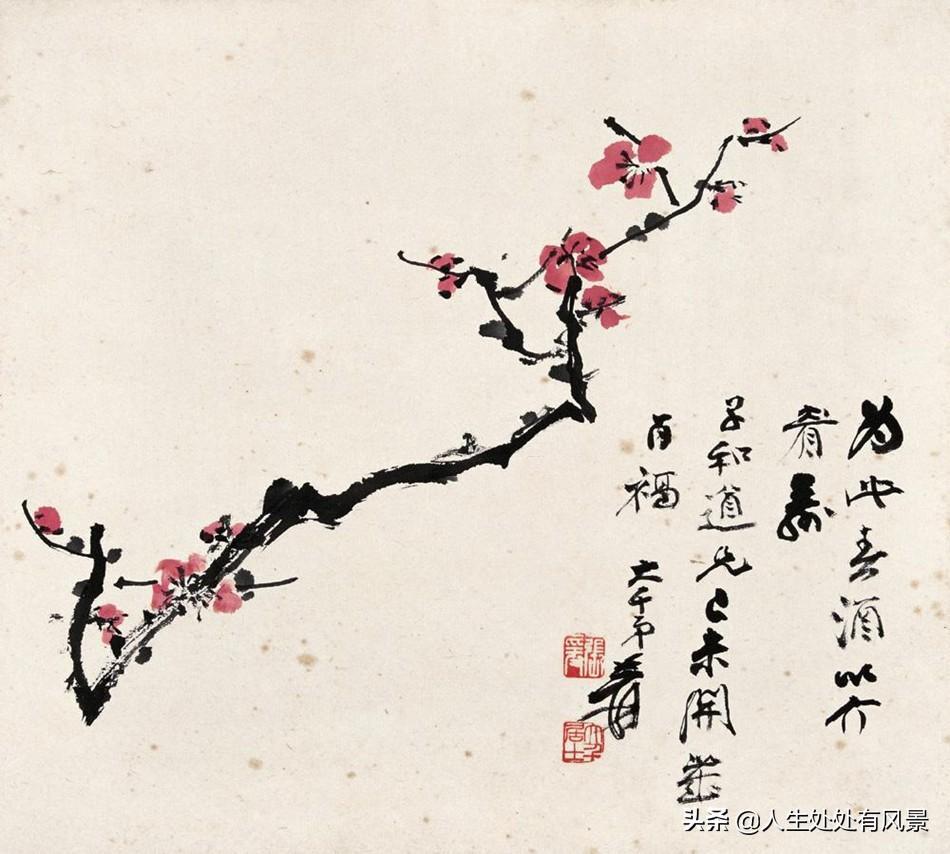 為此春酒以介
眉壽
子和道兄己未開歲
百福 大千弟爰
張爰
大千居士
头条 @人生处处有风景